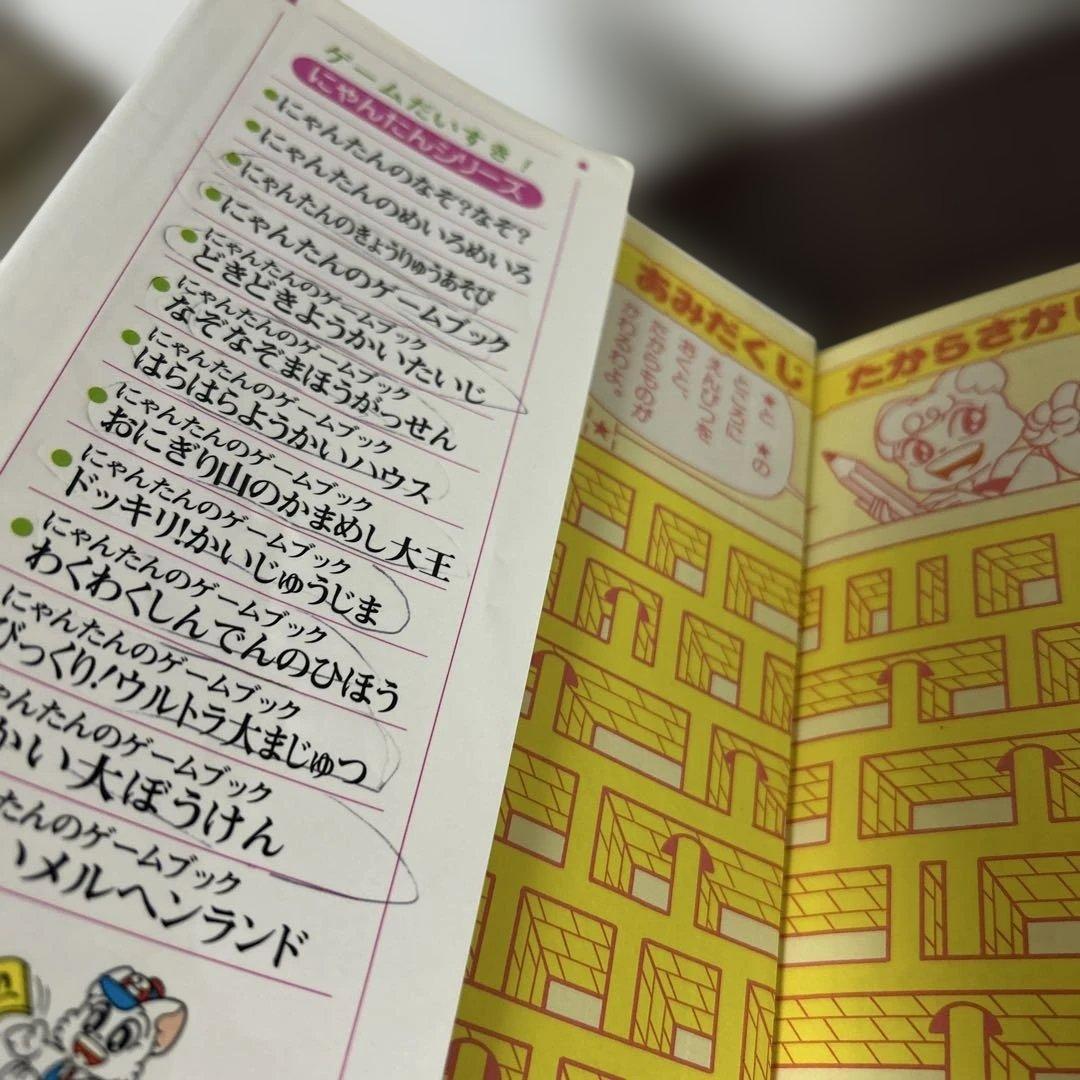 ゲームだいすき!
にゃんたんシリーズ
●にゃんたんのなぞ?なぞ?
●にゃんたんのめいろめいろ
●にゃんたんのきょうりゅうあそび
●にゃんたんのゲームブック
●にゃんたんのゲームブック
どきどきようかいたいじ
●にゃんたんのゲームブック
なぞなぞまほうがっせん
●にゃんたんのゲームブック
はらはらようかいハウス
●にゃんたんのゲームブック
おにぎり山のかまめし大王
●にゃんたんのゲームブック
ドッキリ!かいじゅうじま
●にゃんたんのゲームブック
わくわくしんでんのひほう
にゃんたんのゲームブック
びっくり!ウルトラ大まじゅつ
ゃんたんのゲームブック
かい大ぼうけん
たんのゲームブック
いメルヘンランド
あみだくじ
たからさがし
★と★の
ところに
えんぴつを
おくと、
たからものが
かわるわよ。